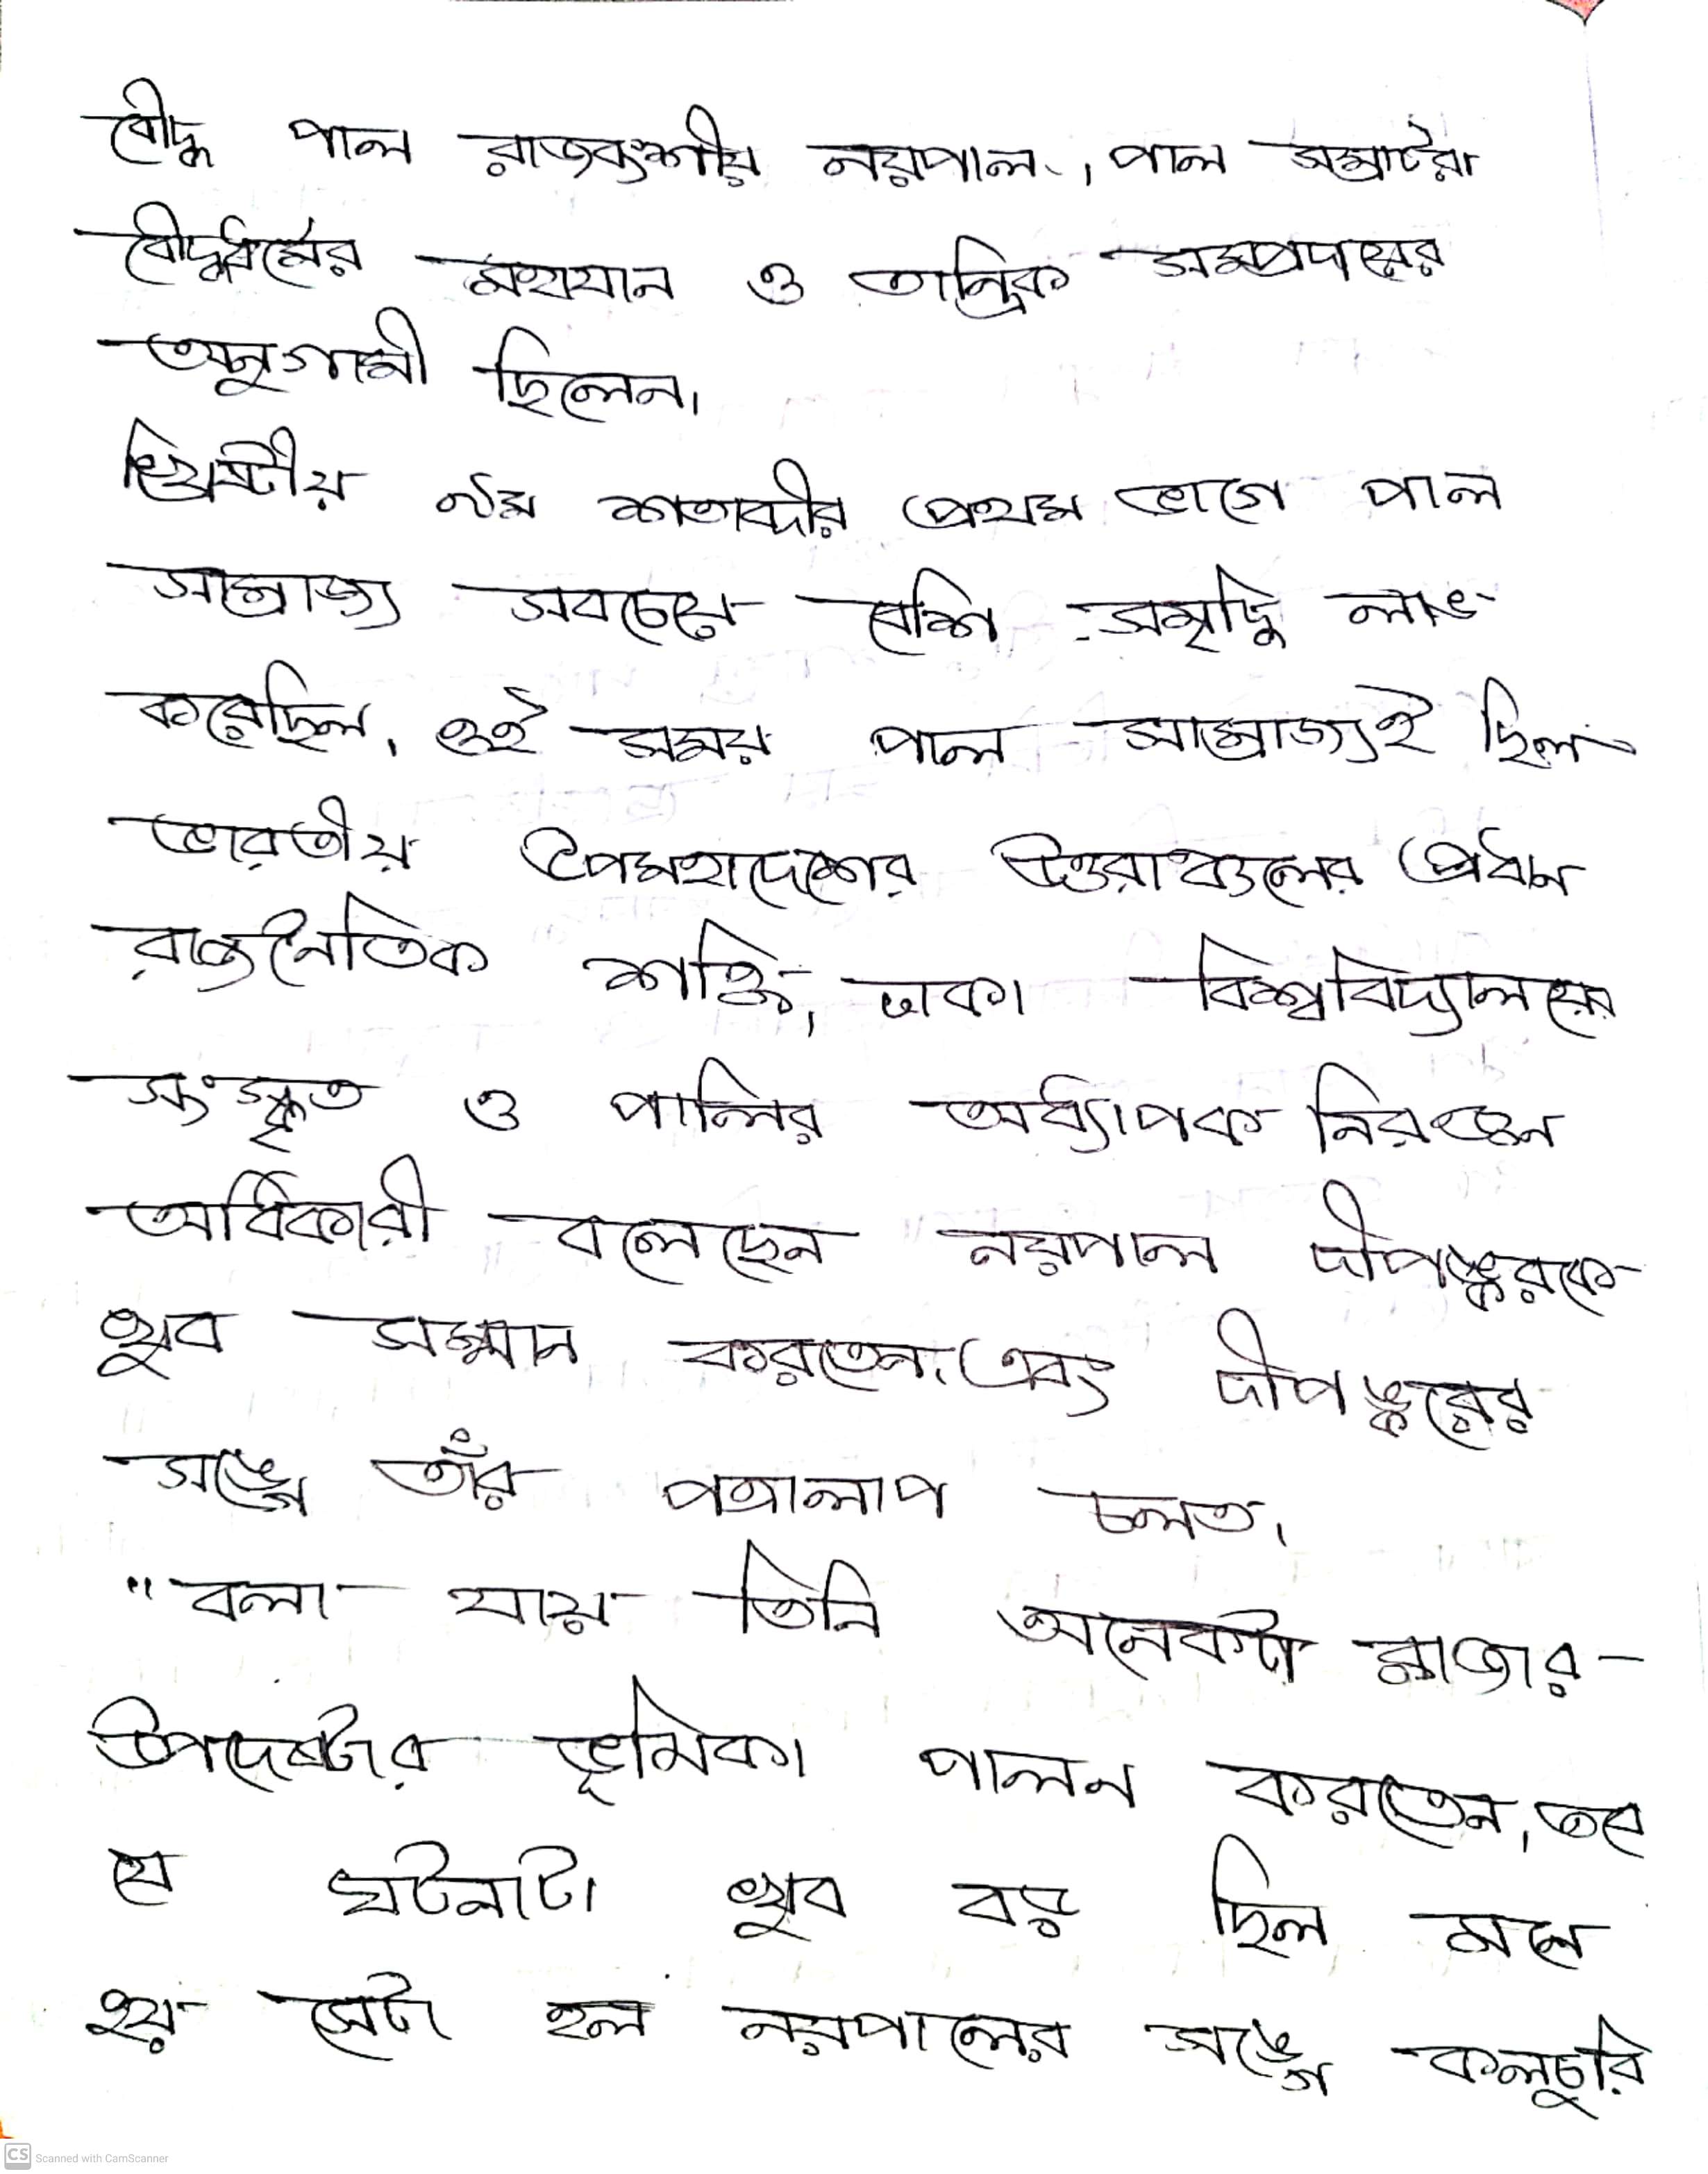 বৌদ্ধ পাল রাজবংশীয় নয়পাল। পাল সম্রাটরা
বৌদ্ধধর্মের মহাযান ও তান্ত্রিক সম্প্রদায়ের
অনুগামী ছিলেন।
খ্রিষ্টীয় নবম শতাব্দীর প্রথম ভাগে পাল
সাম্রাজ্য সবচেয়ে বেশি সমৃদ্ধি লাভ
করেছিল। ওই সময় পাল সাম্রাজ্যই ছিল
ভারতীয় উপমহাদেশের উত্তরাঞ্চলের প্রধান
রাজনৈতিক শক্তি, ঢাকা বিশ্ববিদ্যালয়ের
সংস্কৃত ও পালির অধ্যাপক নিরঞ্জন
অধিকারী বলেছেন নয়পাল দীপঙ্করকে
খুব সম্মান করতেন। এবং দীপঙ্করের
সঙ্গে তাঁর পত্রালাপ চলত।
"বলা যায় তিনি অনেকটা রাজার-
উপদেষ্টার ভূমিকা পালন করতেন, তবে
যে ঘটনাটা খুব বড় ছিল মনে
হয় সেটা হল নয়পালের সঙ্গে কলচুরি
CS Scanned with CamScanner